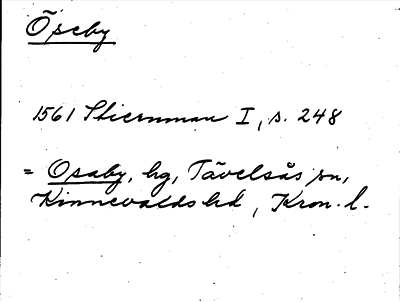 Öseby
1561 Stiernman I, s. 248
= Osaby, hg, Tävelsås sn,
Kinnevalds hd, Kron. l.